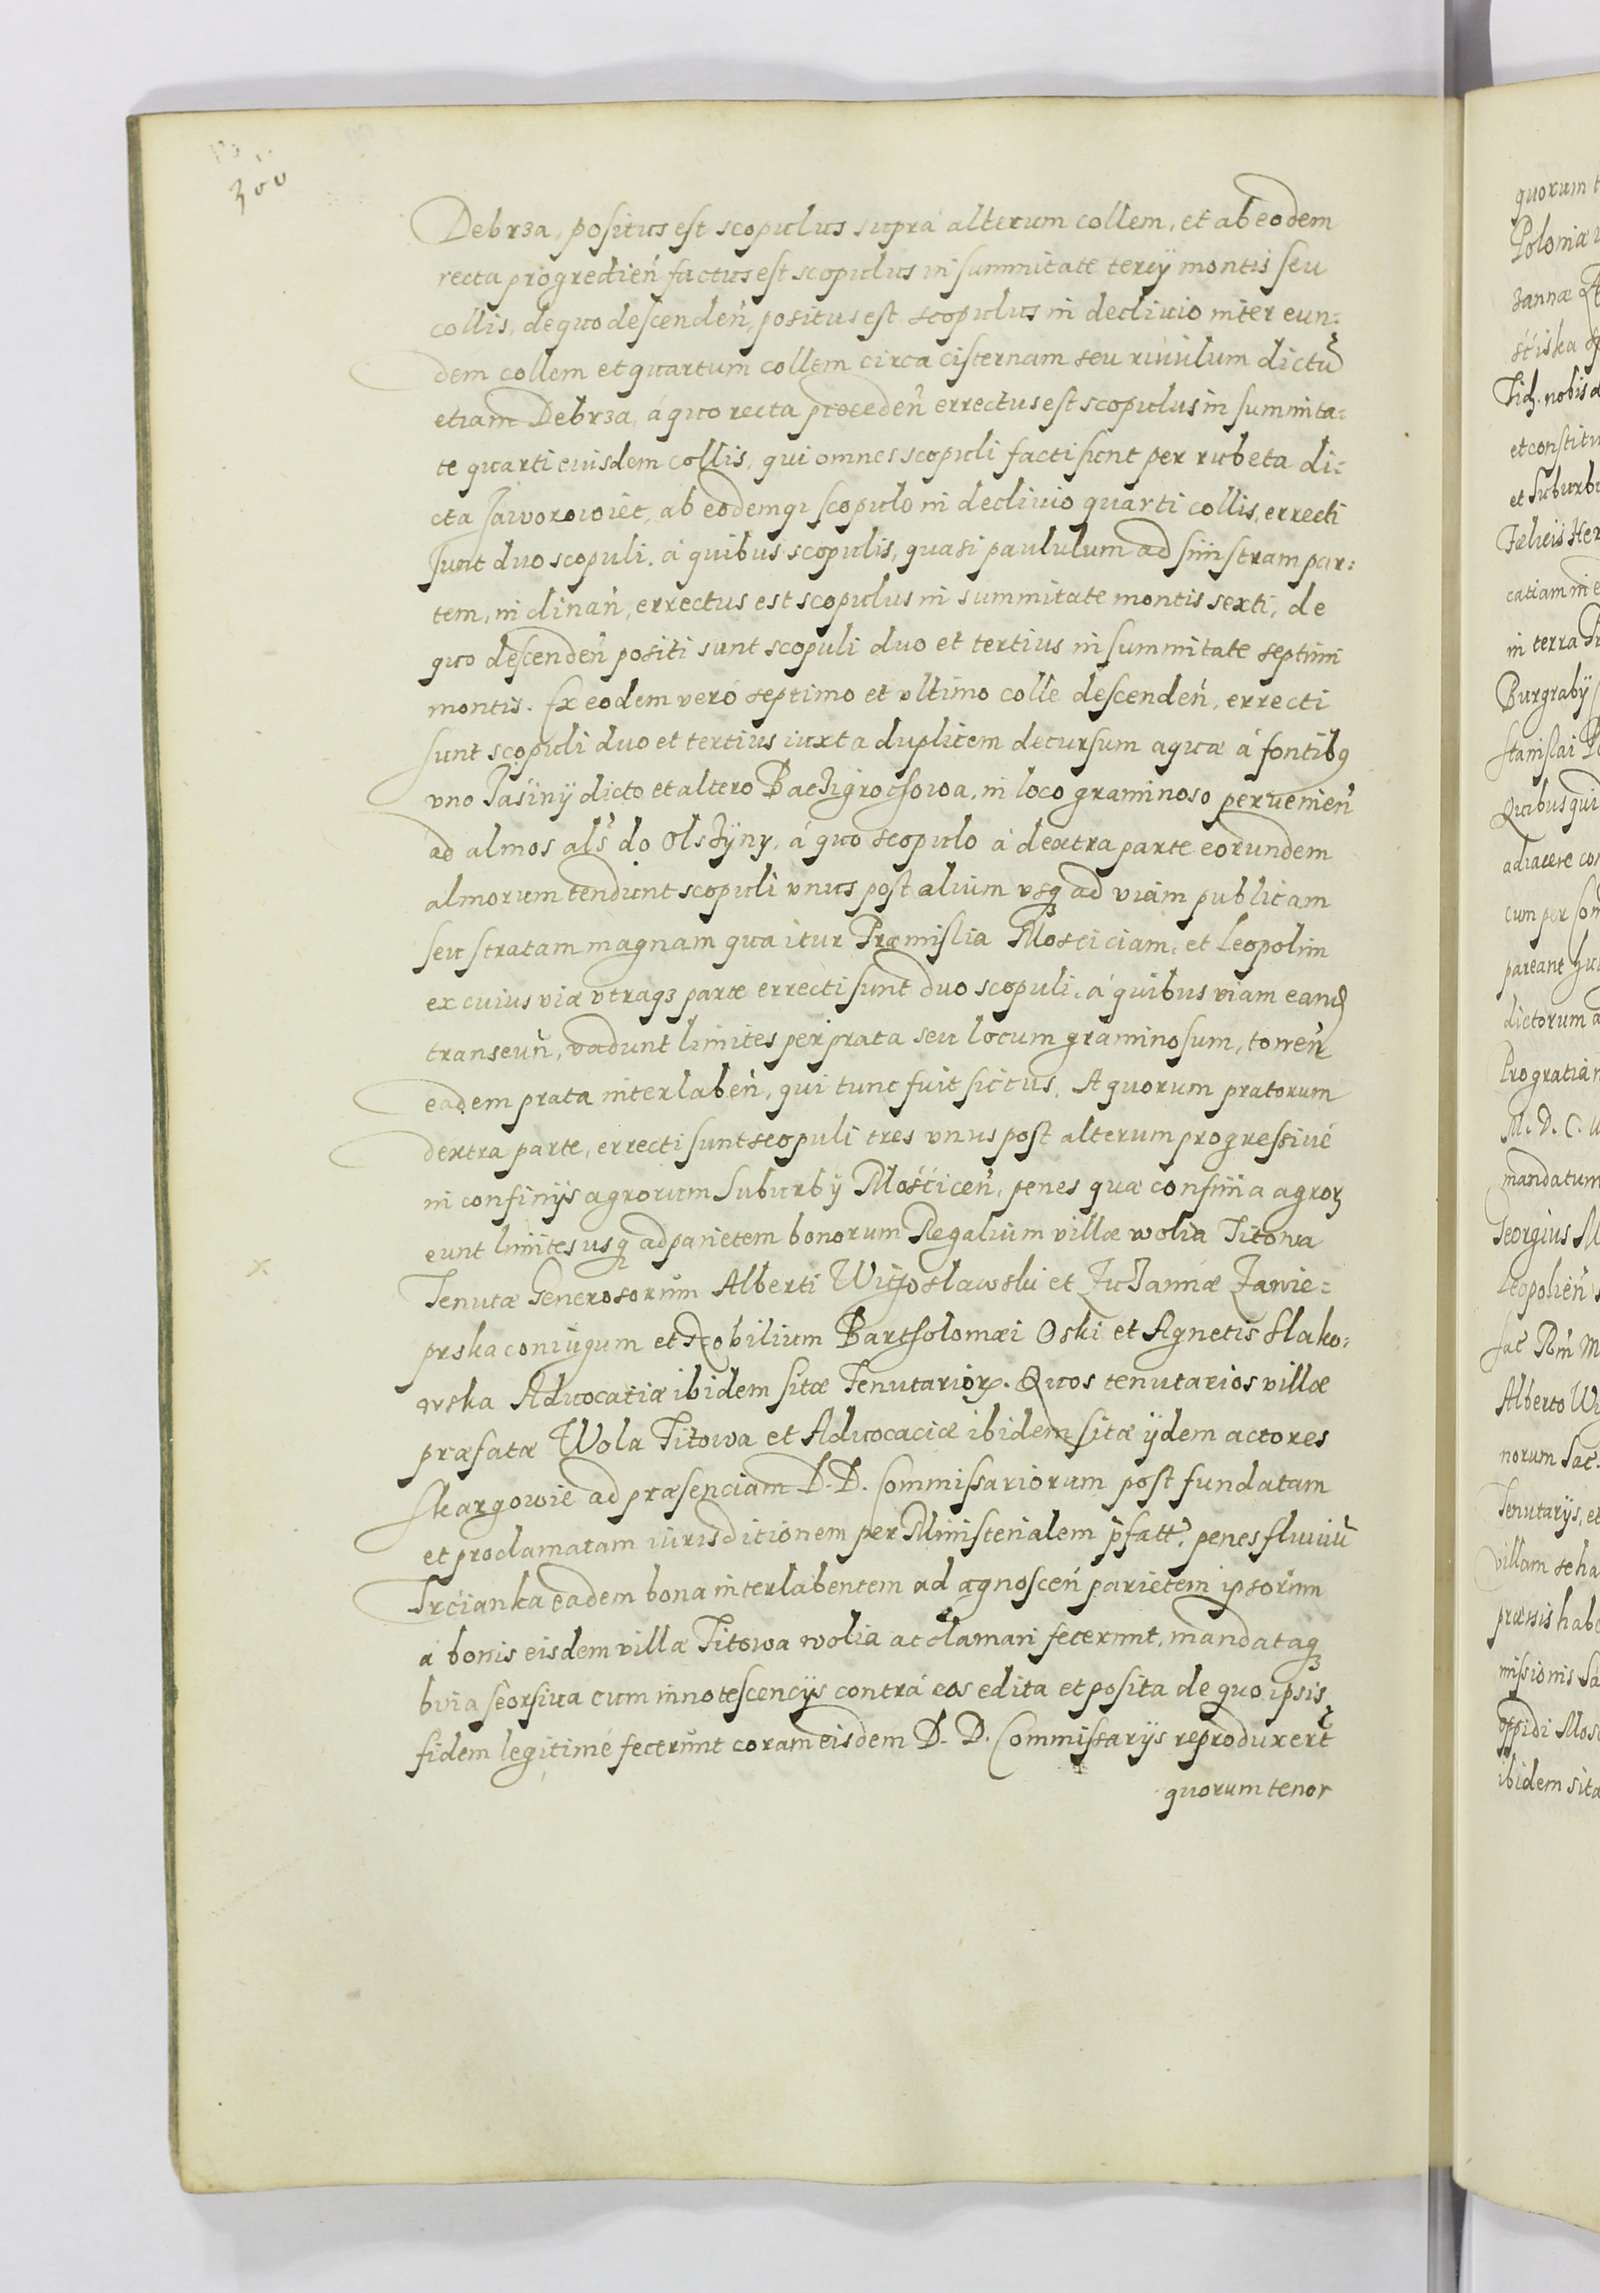 300
Debrza, positus est scopulus suprà alterum collem, et ab eodem
recta progredień factus est scopulus in summitate tercÿ montis seu
collis, de quo descendeń, positus est scopulus in decliuio inter eun:
dem collem et quartum collem circa cisternam seu riuulum dictũ
etiam Debrza, á quo recta procedeń errectus est scopulus in summita:
te quarti eiusdem collis, qui omnes scopuli facti sunt per rubeta di:
cta Jaworowiec, ab eodemq; scopulo in decliuio quarti collis, errecti
sunt duo scopuli, á quibus scopulis, quasi paululum ad sinistram par:
tem, inclinań, errectus est scopulus in summitate montis sexti, de
quo descendeń positi sunt scopuli duo et tertius in summitate septimi
montis. Ex eodem veró septimo et vltimo colle descendeń, errecti
sunt scopuli duo et tertius iuxta duplicem decursum aquæ á fontibꝰ
vno Jasiny dicto et altero Bachigrochowa, in loco graminoso peruenień
ad almos als do Olszyny, á quo scopulo á dextra parte eorundem
almorum tendunt scopuli vnus post alium vsq; ad viam publicam
seu stratam magnam qua itur Præmislia Mosciciam, et Leopolim
ex cuius viæ vtraq; parte errecti sunt duo scopuli, á quibus viam eand
transeuń, vadunt limites per prata seu locum graminosum, torreń
eadem prata interlabeń, qui tunc fuit siccus. A quorum pratorum
dextra parte, errecti sunt scopuli tres vnus post alterum progressiué
in confinÿs agrorum Suburbÿ Mościceń, penes quæ confinia agroꝝ
eunt limites usq; ad parietem bonorum Regalium villæ wolia Titowa
Tenutæ Generosorum Alberti Witosławski et Zuzannæ Zawie:
prska coniugum et Nobilium Bartholomæi Oski et Agnetis Slako:
wska Aduocatiæ ibidem sitæ Tenutarioꝝ. Quos tenutarios villæ
præfatæ Wola Titowa et Aduocaciæ ibidem sitæ ÿdem actores
Skargowie ad præsenciam D. D. Commissariorum post fundatam
et proclamatam iurisditionem per Ministerialem pfatt. penes fluuiũ
Trcianka eadem bona interlabentem ad agnosceń parietem ipsorum
á bonis eisdem villæ Titowa wolia acclamari fecerunt, mandataq;
bina seorsiua cum innotescencÿs contrá eos edita et posita de quo ipsis
fidem legitimé fecerunt coram eisdem D. D. Commissarÿs reproduxert
quorum tenor